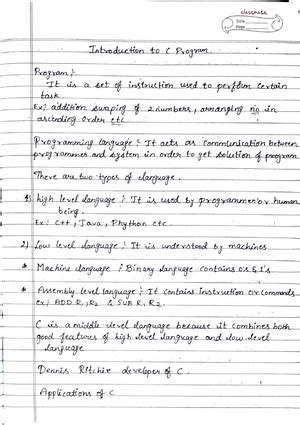 classmate
Date
Page
Introduction to C Program.
Program :-
It is a set of instruction used to perform certain
task
Ex: addition swaping of 2 numbers, arranging no in
ascending order etc
Programming language :- It acts as communication between
programmer and system in order to get solution of program
There are two types of language.
1) high level language :- It is used by programmer or human
being.
Ex: C++, Java, Phython etc.
2) Low level language :- It is understood by machines
* Machine language : Binary language contains 0's & 1's
* Assembly level language :- It contains instruction or commands.
ex: ADD R1, R2 & SUB R1, R2.
C is a middle level language because it combines both
good features of high level language and low level
language
Dennis Ritchie developer of C.
Applications of C